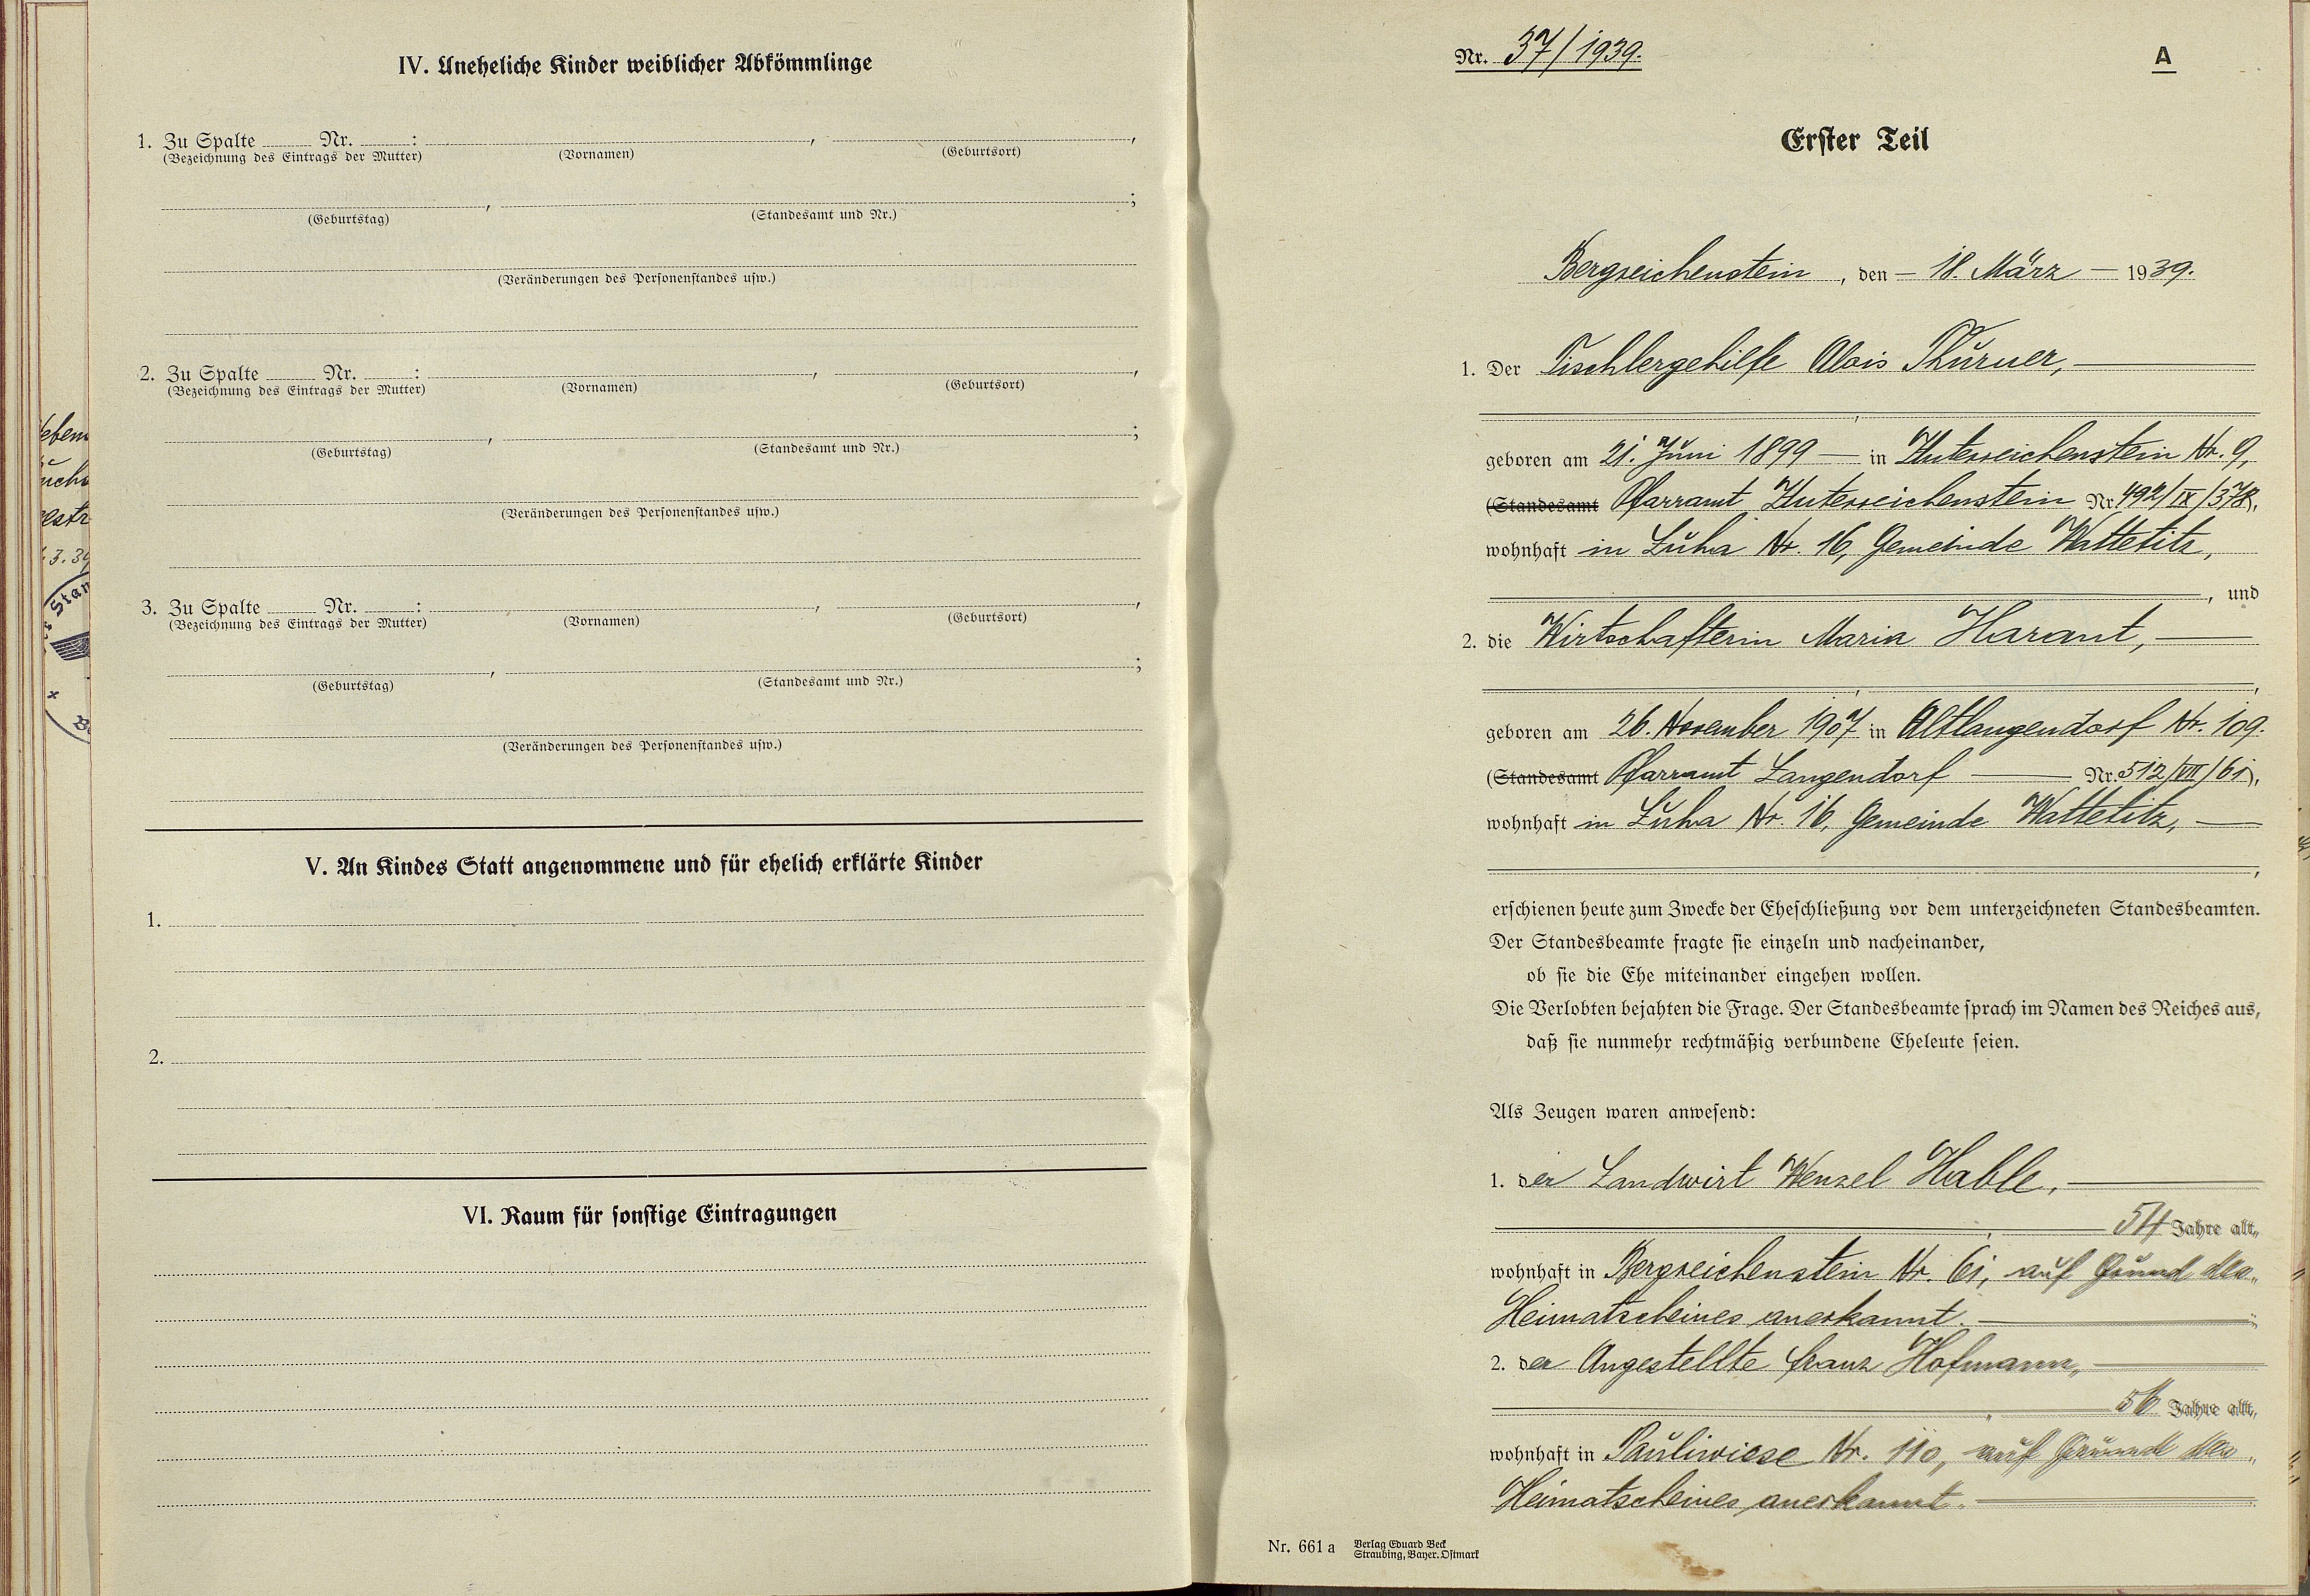 IV. Uneheliche Kinder weiblicher Abkömmlinge
1. Zu Spalte Nr. : , ,
(Bezeichnung des Eintrags der Mutter) (Vornamen) (Geburtsort)
, ;
(Geburtstag) (Standesamt und Nr.)
(Veränderungen des Personenstandes usw.)
2. Zu Spalte Nr. : , ,
(Bezeichnung des Eintrags der Mutter) (Vornamen) (Geburtsort)
, ;
(Geburtstag) (Standesamt und Nr.)
(Veränderungen des Personenstandes usw.)
3. Zu Spalte Nr. : , ,
(Bezeichnung des Eintrags der Mutter) (Vornamen) (Geburtsort)
, ;
(Geburtstag) (Standesamt und Nr.)
(Veränderungen des Personenstandes usw.)
V. An Kindes Statt angenommene und für ehelich erklärte Kinder
1.
2.
VI. Raum für sonstige Eintragungen
Nr. 37/1939.
A
Erster Teil
Bergreichenstein, den – 18. März – 1939.
1. Der Tischlergehilfe Alois Thurner,
geboren am 21. Juni 1899 – in Unterreichenstein Nr. 9,
(Standesamt Pfarramt Unterreichenstein Nr. 492/IX/378),
wohnhaft in Luha Nr. 16, Gemeinde Wattetitz,
, und
2. die Wirtschafterin Maria Harant,
geboren am 26. November 1907 in Altlangendorf Nr. 109.
(Standesamt Pfarramt Langendorf — Nr. 512/VII/61),
wohnhaft in Luha Nr. 16, Gemeinde Wattetitz, —
erschienen heute zum Zwecke der Eheschließung vor dem unterzeichneten Standesbeamten.
Der Standesbeamte fragte sie einzeln und nacheinander,
ob sie die Ehe miteinander eingehen wollen.
Die Verlobten bejahten die Frage. Der Standesbeamte sprach im Namen des Reiches aus,
daß sie nunmehr rechtmäßig verbundene Eheleute seien.
Als Zeugen waren anwesend:
1. der Landwirt Wenzel Hable,
54 Jahre alt,
wohnhaft in Bergreichenstein Nr. 61, auf Grund des
Heimatscheines anerkannt.
2. der Angestellte Franz Hofmann,
56 Jahre alt,
wohnhaft in Pauliwiese Nr. 110, auf Grund des
Heimatscheines anerkannt.
Nr. 661 a Verlag Eduard Beck
Straubing, Bayer. Ostmark